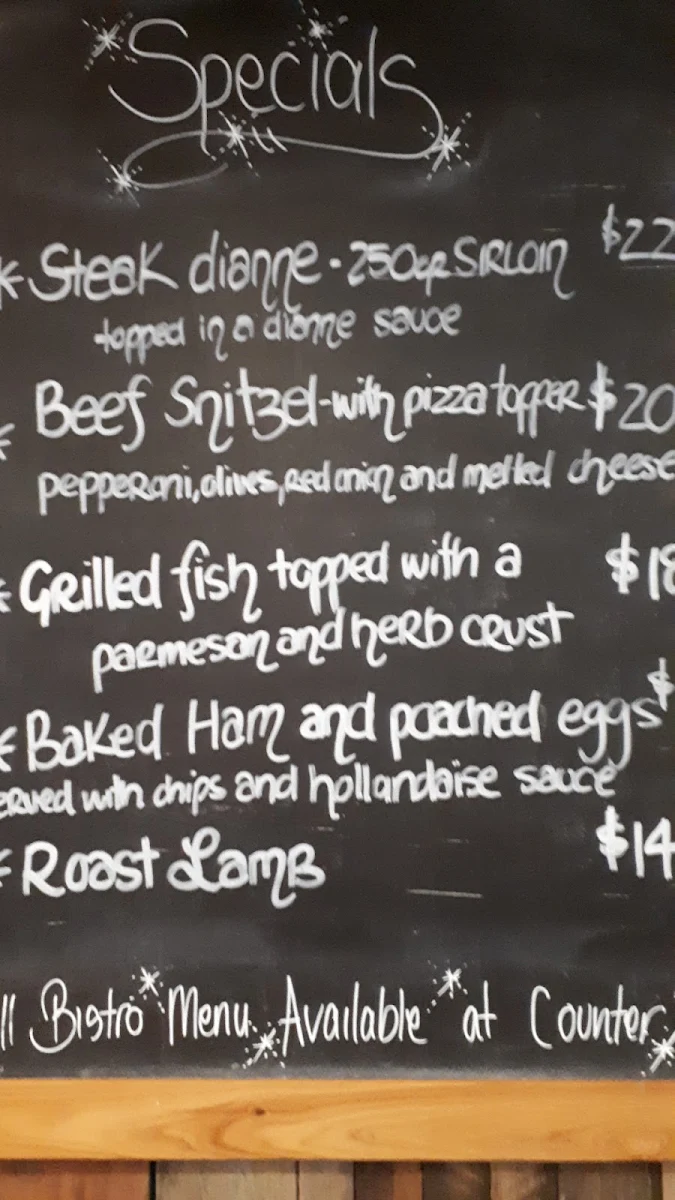 Specials
Steak dianne - 250gr Sirloin $22
topped in a dianne sauce
Beef Snitzel - with pizza topper $20
pepperoni, olives, red onion and melted cheese
Grilled fish topped with a $18
parmesan and herb crust
Baked Ham and poached eggs $
erved with chips and hollandaise sauce
Roast Lamb $14
ll Bistro Menu Available at Counter